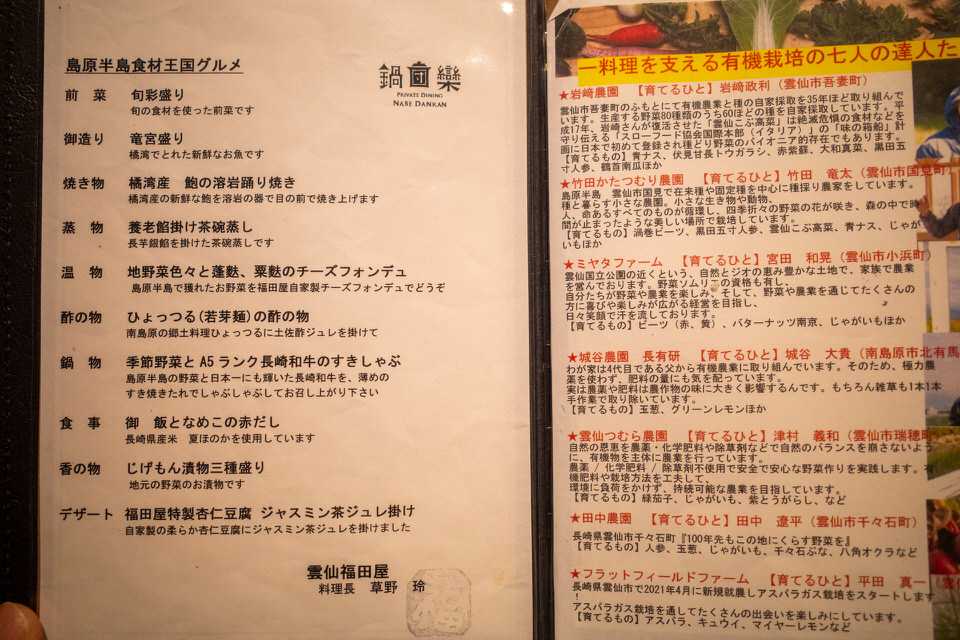 島原半島食材王国グルメ
鍋団欒
PRIVATE DINING
NABE DANKAN
前 菜 旬彩盛り
旬の食材を使った前菜です
御造り 竜宮盛り
橘湾でとれた新鮮なお魚です
焼き物 橘湾産 鮑の溶岩踊り焼き
橘湾産の新鮮な鮑を溶岩の器で目の前で焼き上げます
蒸 物 養老餡掛け茶碗蒸し
長芋銀餡を掛けた茶碗蒸しです
温 物 地野菜色々と蓬麩、粟麩のチーズフォンデュ
島原半島で獲れたお野菜を福田屋自家製チーズフォンデュでどうぞ
酢の物 ひょっつる(若芽麺)の酢の物
南島原の郷土料理ひょっつるに土佐酢ジュレを掛けて
鍋 物 季節野菜とA5ランク長崎和牛のすきしゃぶ
島原半島の野菜と日本一にも輝いた長崎和牛を、薄めの
すき焼きたれでしゃぶしゃぶしてお召し上がり下さい
食 事 御 飯となめこの赤だし
長崎県産米 夏ほのかを使用しています
香の物 じげもん漬物三種盛り
地元の野菜のお漬物です
デザート 福田屋特製杏仁豆腐 ジャスミン茶ジュレ掛け
自家製の柔らか杏仁豆腐にジャスミン茶ジュレを掛けました
雲仙福田屋
料理長 草野 玲
―料理を支える有機栽培の七人の達人た
★岩﨑農園 【育てるひと】岩﨑政利(雲仙市吾妻町)
雲仙市吾妻町のふもとにて有機農業と種の自家採取を35年ほど取り組んで
います。生産する野菜80種類のうち60ほどの種を自家採取しています。平
成17年、岩崎さんが復活させた「雲仙こぶ高菜」は絶滅危惧の食材などを
守り伝える「スローフード協会国際本部(イタリア)」の「味の箱船」計
画に日本で初めて登録され種どり野菜のパイオニア的存在でもあります。
【育てるもの】青ナス、伏見甘長トウガラシ、赤紫蘇、大和真菜、黒田五
寸人参、鶴首南瓜ほか
★竹田かたつむり農園 【育てるひと】竹田 竜太(雲仙市国見町)
島原半島 雲仙市国見で在来種や固定種を中心に種採り農家をしています。
種と暮らす小さな農園。小さな生き物や動物、
人、命あるすべてのものが循環し、四季折々の野菜の花が咲き、森の中で時
間が止まったような美しい場所で栽培しています。
【育てるもの】渦巻ビーツ、黒田五寸人参、雲仙こぶ高菜、青ナス、じゃが
いもほか
★ミヤタファーム 【育てるひと】宮田 和晃(雲仙市小浜町)
雲仙国立公園の近くという、自然とジオの恵み豊かな土地で、家族で農業
を営んでおります。野菜ソムリエの資格も有し、
自分たちが野菜や農業を楽しみ、そして、野菜や農業を通じてたくさんの
方に喜びや楽しみが広がる経営を目指し、
日々笑顔で汗を流しております。
【育てるもの】ビーツ(赤、黄)、バターナッツ南京、じゃがいもほか
★城谷農園 長有研 【育てるひと】城谷 大貴(南島原市北有馬
わが家は4代目である父から有機農業に取り組んでいます。そのため、極力農
薬を使わず、肥料の量にも気を配っています。
実は農薬や肥料は農作物の味に大きく影響するんです。もちろん雑草も1本1本
手作業で取り除いています。
【育てるもの】玉葱、グリーンレモンほか
★雲仙つむら農園 【育てるひと】津村 義和(雲仙市瑞穂町
自然の恩恵を農薬・化学肥料や除草剤などで自然のバランスを崩さないよう
に、有機物を主体に農業を行っています。
農薬/化学肥料/除草剤不使用で安全で安心な野菜作りを実践します。有
機肥料や栽培方法を工夫して、
環境に負荷をかけず、持続可能な農業を目指しています。
【育てるもの】緑茄子、じゃがいも、紫とうがらし、など
★田中農園 【育てるひと】田中 遼平(雲仙市千々石町)
長崎県雲仙市千々石町『100年先もこの地にくらす野菜を』
【育てるもの】人参、玉葱、じゃがいも、千々石ぶな、八角オクラなど
★フラットフィールドファーム 【育てるひと】平田 真一(雲仙
長崎県雲仙市で2021年4月に新規就農しアスパラガス栽培をスタートします
!
アスパラガス栽培を通してたくさんの出会いを楽しみにしています。
【育てるもの】アスパラ、キュウイ、マイヤーレモンなど